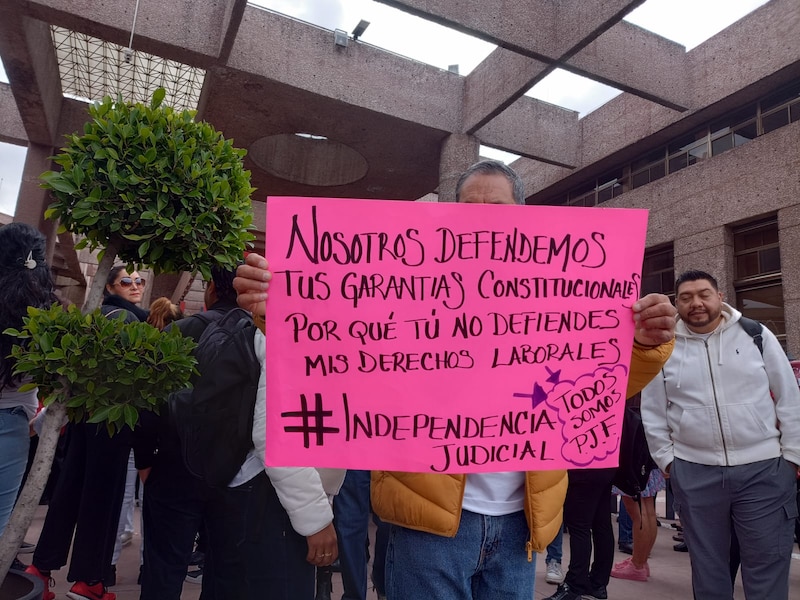 NOSOTROS DEFENDEMOS
TUS GARANTIAS CONSTITUCIONALES
POR QUÉ TÚ NO DEFIENDES
MIS DERECHOS LABORALES
#INDEPENDENCIA
JUDICIAL
TODOS
SOMOS
P.J.F.